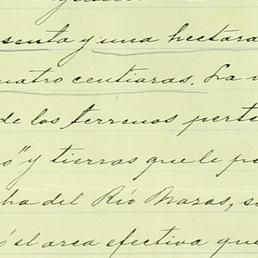 senta y una hectara
uatro centiaras. La
de los terrenos perte
o" y tierras que le p
ha del Río Mazas, s
ó el area efectiva que